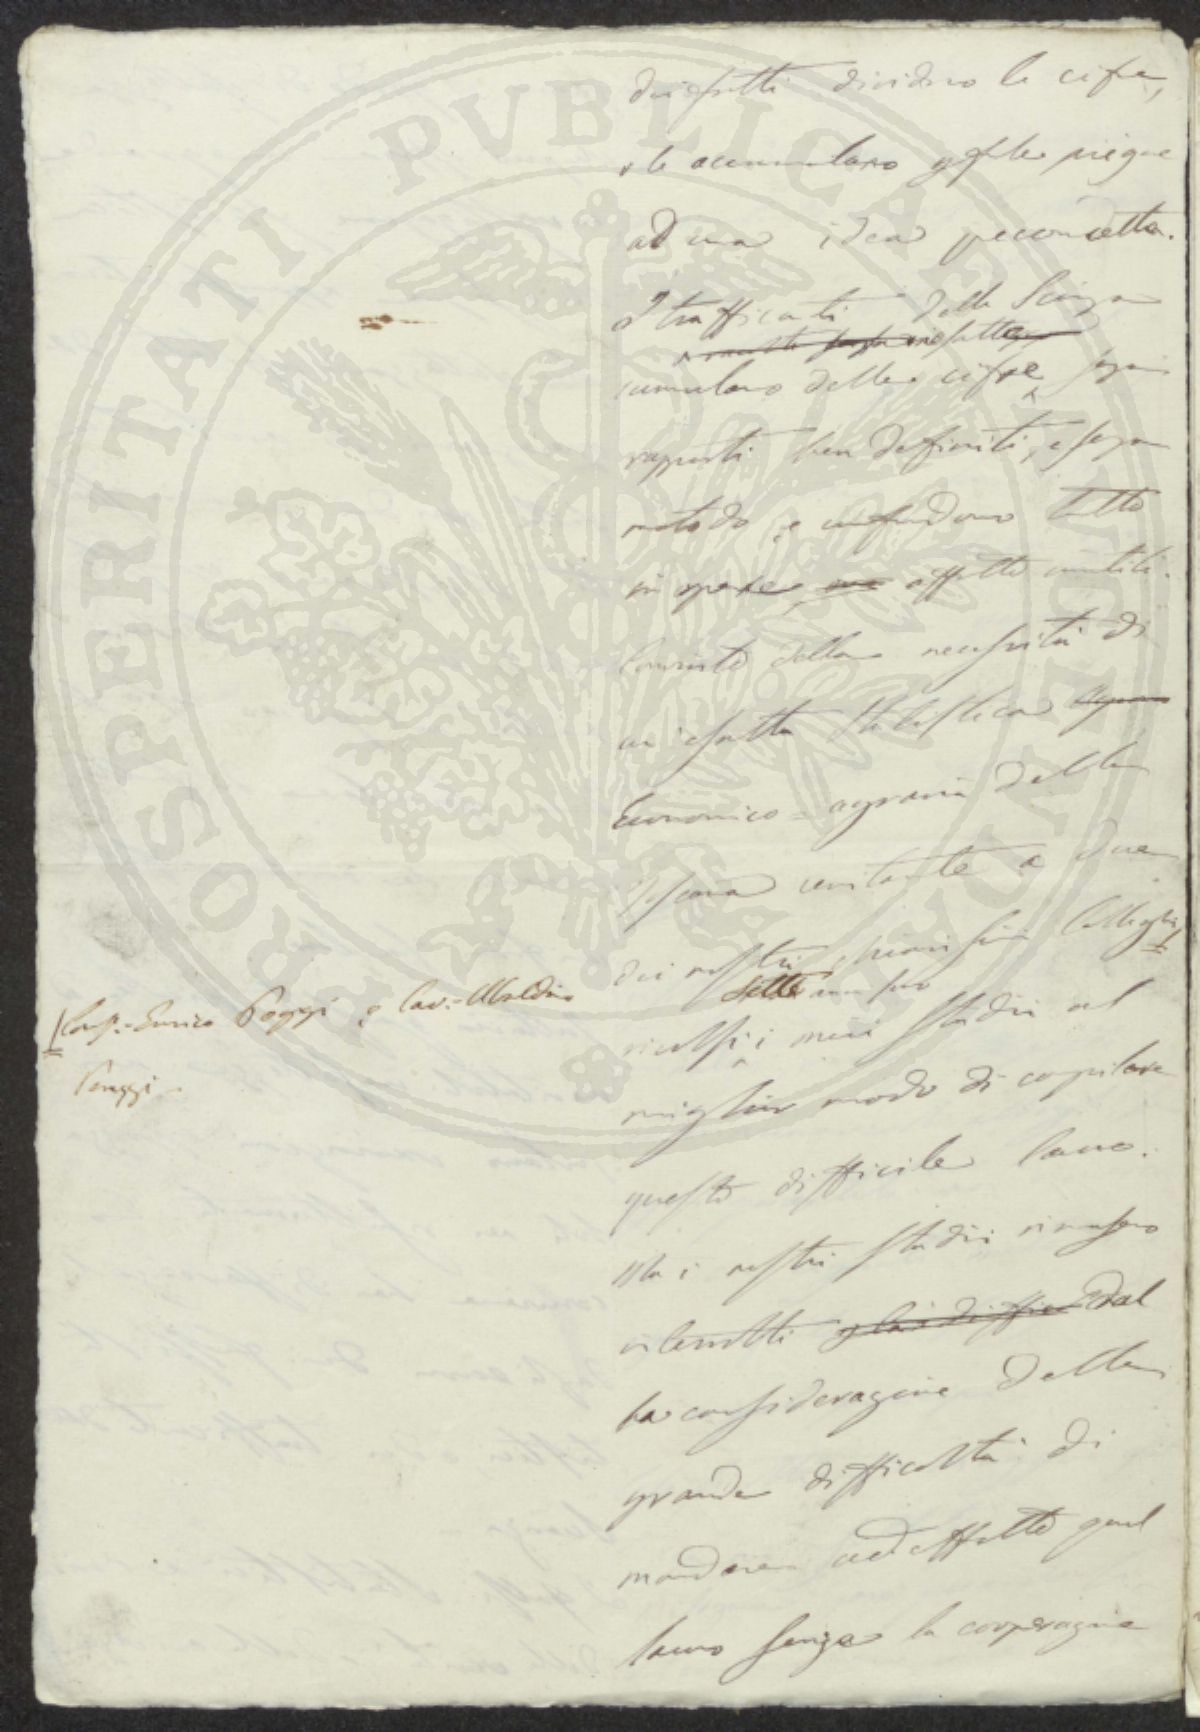 dei fatti dividono le cifre,
o le accumulano per farle piegare
ad una idea preconcetta.
I trafficanti della Scienza
cumulano delle cifre senza
rapporti ben definiti, e senza
metodo, e confondono tutto
in opere, affatto inutili.
Convinto della necessità di
un'esatta Statistica
Economico-agraria della
Toscana unitamente a due
dei nostri chiarissimi Colleghi
rivolsi i miei studii al
miglior modo di compilare
questo difficile lavoro.
Ma i nostri studii rimasero
interrotti dal
la considerazione della
grande difficoltà di
mandare ad effetto quel
lavoro senza la cooperazione
Cons. Enrico Poggi e Cav. Ubaldino
Peruzzi.
PROSPERITATI PUBLICAE AUGENDAE